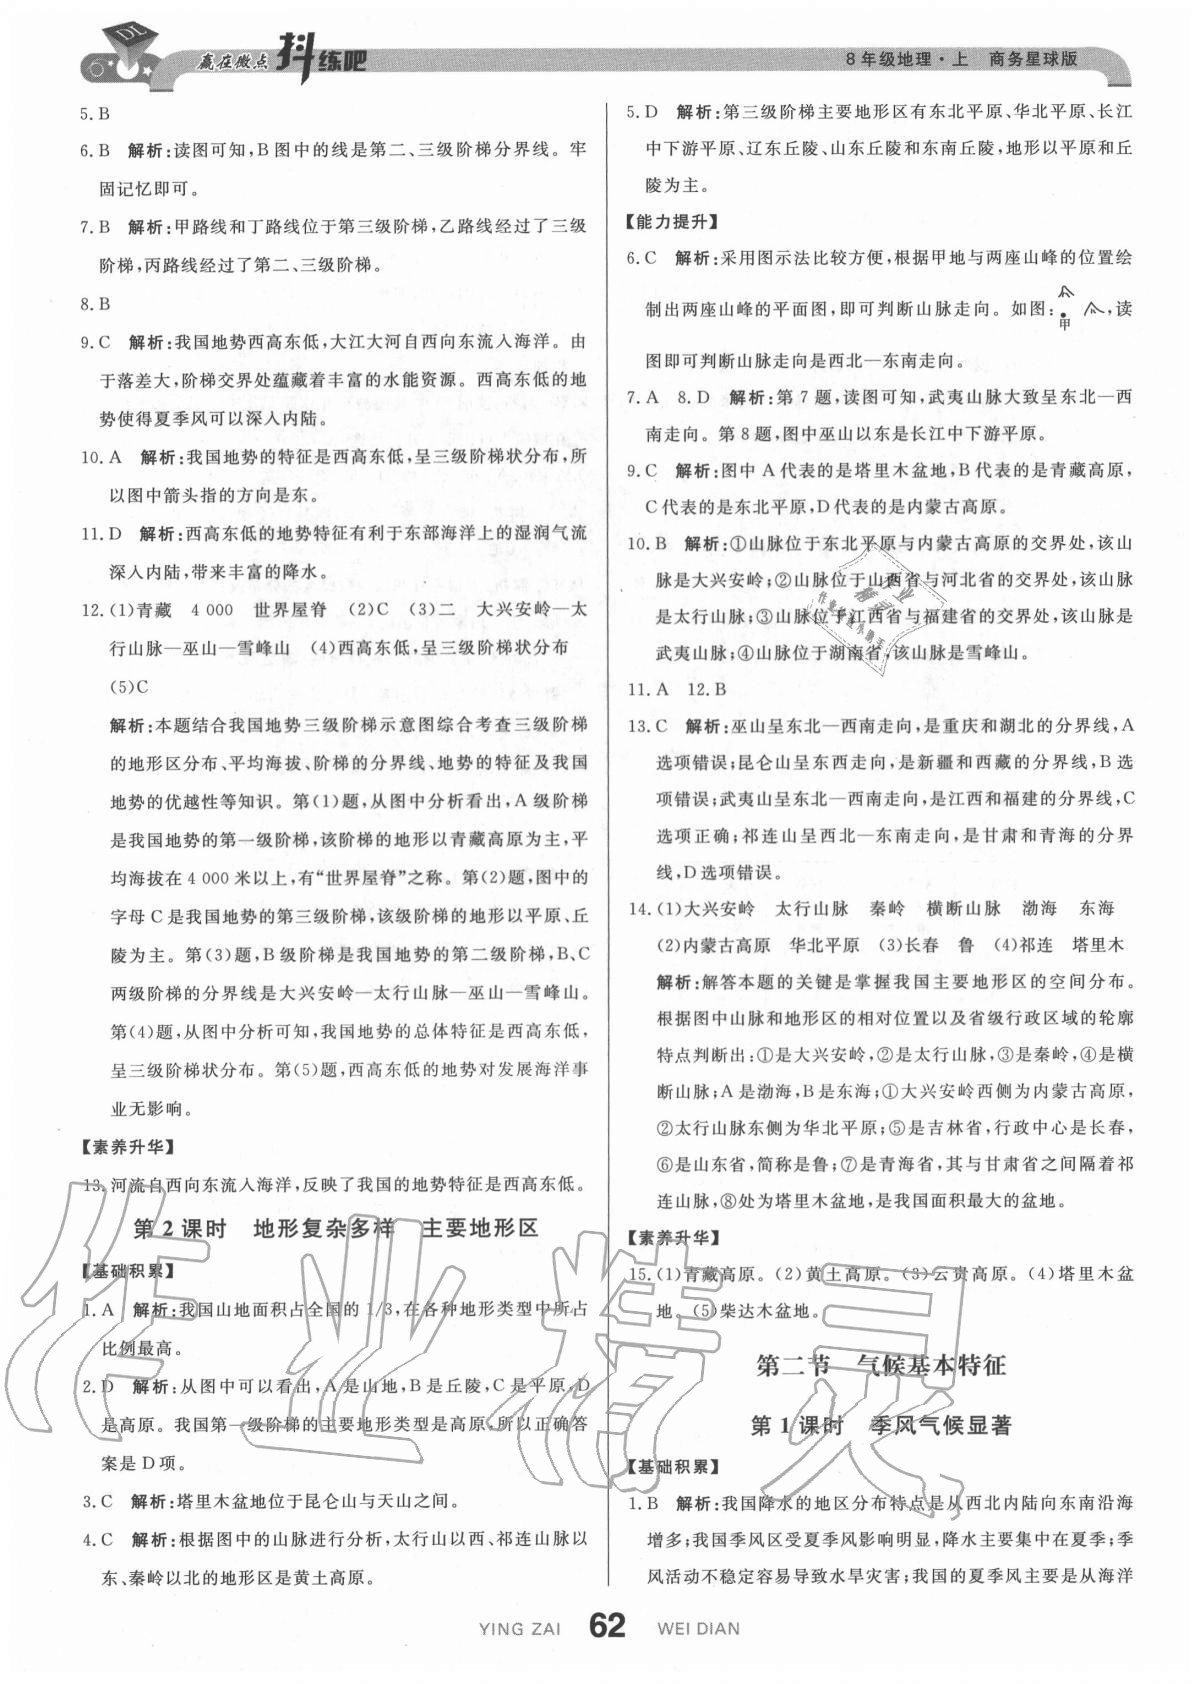 DL
赢在微点 抖练吧
8年级地理·上 商务星球版
5. B
6. B 解析:读图可知,B图中的线是第二、三级阶梯分界线。牢
固记忆即可。
7. B 解析:甲路线和丁路线位于第三级阶梯,乙路线经过了三级
阶梯,丙路线经过了第二、三级阶梯。
8. B
9. C 解析:我国地势西高东低,大江大河自西向东流入海洋。由
于落差大,阶梯交界处蕴藏着丰富的水能资源。西高东低的地
势使得夏季风可以深入内陆。
10. A 解析:我国地势的特征是西高东低,呈三级阶梯状分布,所
以图中箭头指的方向是东。
11. D 解析:西高东低的地势特征有利于东部海洋上的湿润气流
深入内陆,带来丰富的降水。
12. (1)青藏 4 000 世界屋脊 (2)C (3)二 大兴安岭—太
行山脉—巫山—雪峰山 (4)西高东低,呈三级阶梯状分布
(5)C
解析:本题结合我国地势三级阶梯示意图综合考查三级阶梯
的地形区分布、平均海拔、阶梯的分界线、地势的特征及我国
地势的优越性等知识。第(1)题,从图中分析看出,A级阶梯
是我国地势的第一级阶梯,该阶梯的地形以青藏高原为主,平
均海拔在4 000米以上,有“世界屋脊”之称。第(2)题,图中的
字母C是我国地势的第三级阶梯,该级阶梯的地形以平原、丘
陵为主。第(3)题,B级阶梯是我国地势的第二级阶梯,B、C
两级阶梯的分界线是大兴安岭—太行山脉—巫山—雪峰山。
第(4)题,从图中分析可知,我国地势的总体特征是西高东低,
呈三级阶梯状分布。第(5)题,西高东低的地势对发展海洋事
业无影响。
【素养升华】
13. 河流自西向东流入海洋,反映了我国的地势特征是西高东低。
第2课时 地形复杂多样 主要地形区
【基础积累】
1. A 解析:我国山地面积占全国的1/3,在各种地形类型中所占
比例最高。
2. D 解析:从图中可以看出,A是山地,B是丘陵,C是平原,D
是高原。我国第一级阶梯的主要地形类型是高原,所以正确答
案是D项。
3. C 解析:塔里木盆地位于昆仑山与天山之间。
4. C 解析:根据图中的山脉进行分析,太行山以西、祁连山脉以
东、秦岭以北的地形区是黄土高原。
5. D 解析:第三级阶梯主要地形区有东北平原、华北平原、长江
中下游平原、辽东丘陵、山东丘陵和东南丘陵,地形以平原和丘
陵为主。
【能力提升】
6. C 解析:采用图示法比较方便,根据甲地与两座山峰的位置绘
制出两座山峰的平面图,即可判断山脉走向。如图:甲,读
图即可判断山脉走向是西北—东南走向。
7. A 8. D 解析:第7题,读图可知,武夷山脉大致呈东北—西
南走向。第8题,图中巫山以东是长江中下游平原。
9. C 解析:图中A代表的是塔里木盆地,B代表的是青藏高原,
C代表的是东北平原,D代表的是内蒙古高原。
10. B 解析:①山脉位于东北平原与内蒙古高原的交界处,该山
脉是大兴安岭;②山脉位于山西省与河北省的交界处,该山脉
是太行山脉;③山脉位于江西省与福建省的交界处,该山脉是
武夷山脉;④山脉位于湖南省,该山脉是雪峰山。
11. A 12. B
13. C 解析:巫山呈东北—西南走向,是重庆和湖北的分界线,A
选项错误;昆仑山呈东西走向,是新疆和西藏的分界线,B选
项错误;武夷山呈东北—西南走向,是江西和福建的分界线,C
选项正确;祁连山呈西北—东南走向,是甘肃和青海的分界
线,D选项错误。
14. (1)大兴安岭 太行山脉 秦岭 横断山脉 渤海 东海
(2)内蒙古高原 华北平原 (3)长春 鲁 (4)祁连 塔里木
解析:解答本题的关键是掌握我国主要地形区的空间分布。
根据图中山脉和地形区的相对位置以及省级行政区域的轮廓
特点判断出:①是大兴安岭,②是太行山脉,③是秦岭,④是横
断山脉;A是渤海,B是东海;①大兴安岭西侧为内蒙古高原,
②太行山脉东侧为华北平原;⑤是吉林省,行政中心是长春,
⑥是山东省,简称是鲁;⑦是青海省,其与甘肃省之间隔着祁
连山脉,⑧处为塔里木盆地,是我国面积最大的盆地。
【素养升华】
15. (1)青藏高原。(2)黄土高原。(3)云贵高原。(4)塔里木盆
地。(5)柴达木盆地。
第二节 气候基本特征
第1课时 季风气候显著
【基础积累】
1. B 解析:我国降水的地区分布特点是从西北内陆向东南沿海
增多;我国季风区受夏季风影响明显,降水主要集中在夏季;季
风活动不稳定容易导致水旱灾害;我国的夏季风主要是从海洋
作业精灵
YING ZAI 62 WEI DIAN